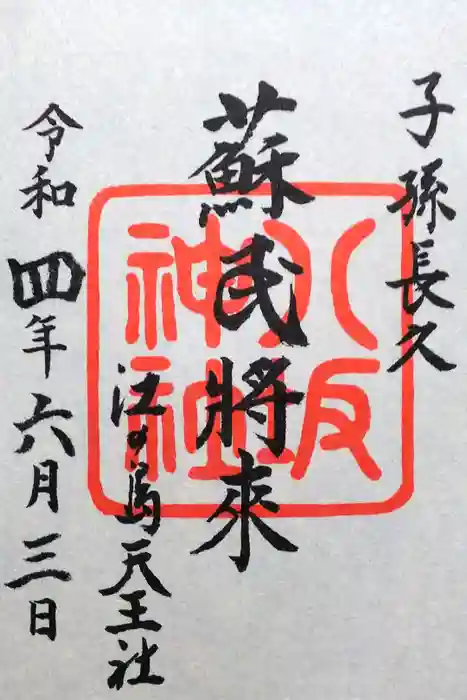 子孫長久
蘇民將來
江の島天王社
令和四年六月三日
八坂神社